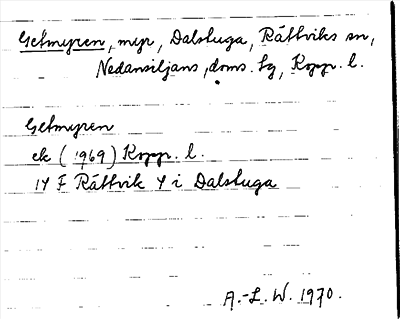 Getmyren, myr, Dalstuga, Rättviks sn,
Nedansiljans, doms. tg, Kopp. l.
Getmyren
ek (1969) Kopp. l.
14 F Rättvik 4 i Dalstuga
A.-L. W. 1970.